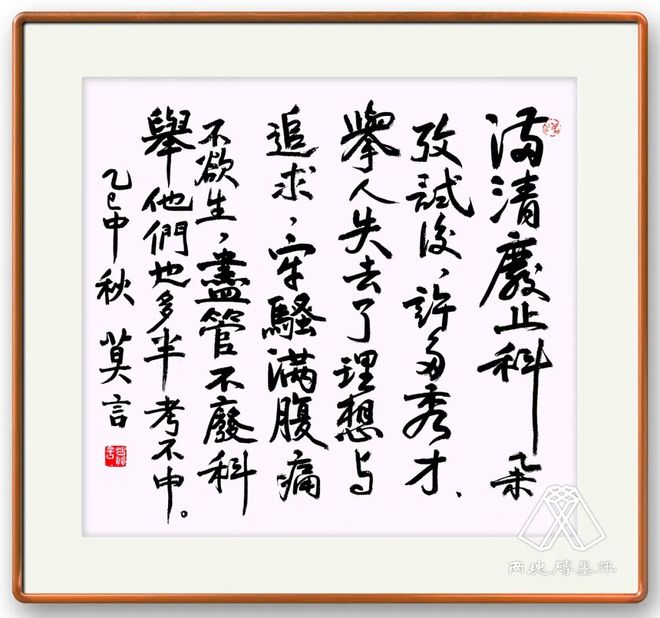 满清廢止科举
攷試後，許多秀才、
舉人失去了理想与
追求，牢騷满腹痛
不欲生，盡管不廢科
舉他們也多半考不中。
乙巳中秋 莫言
两块砖墨訊